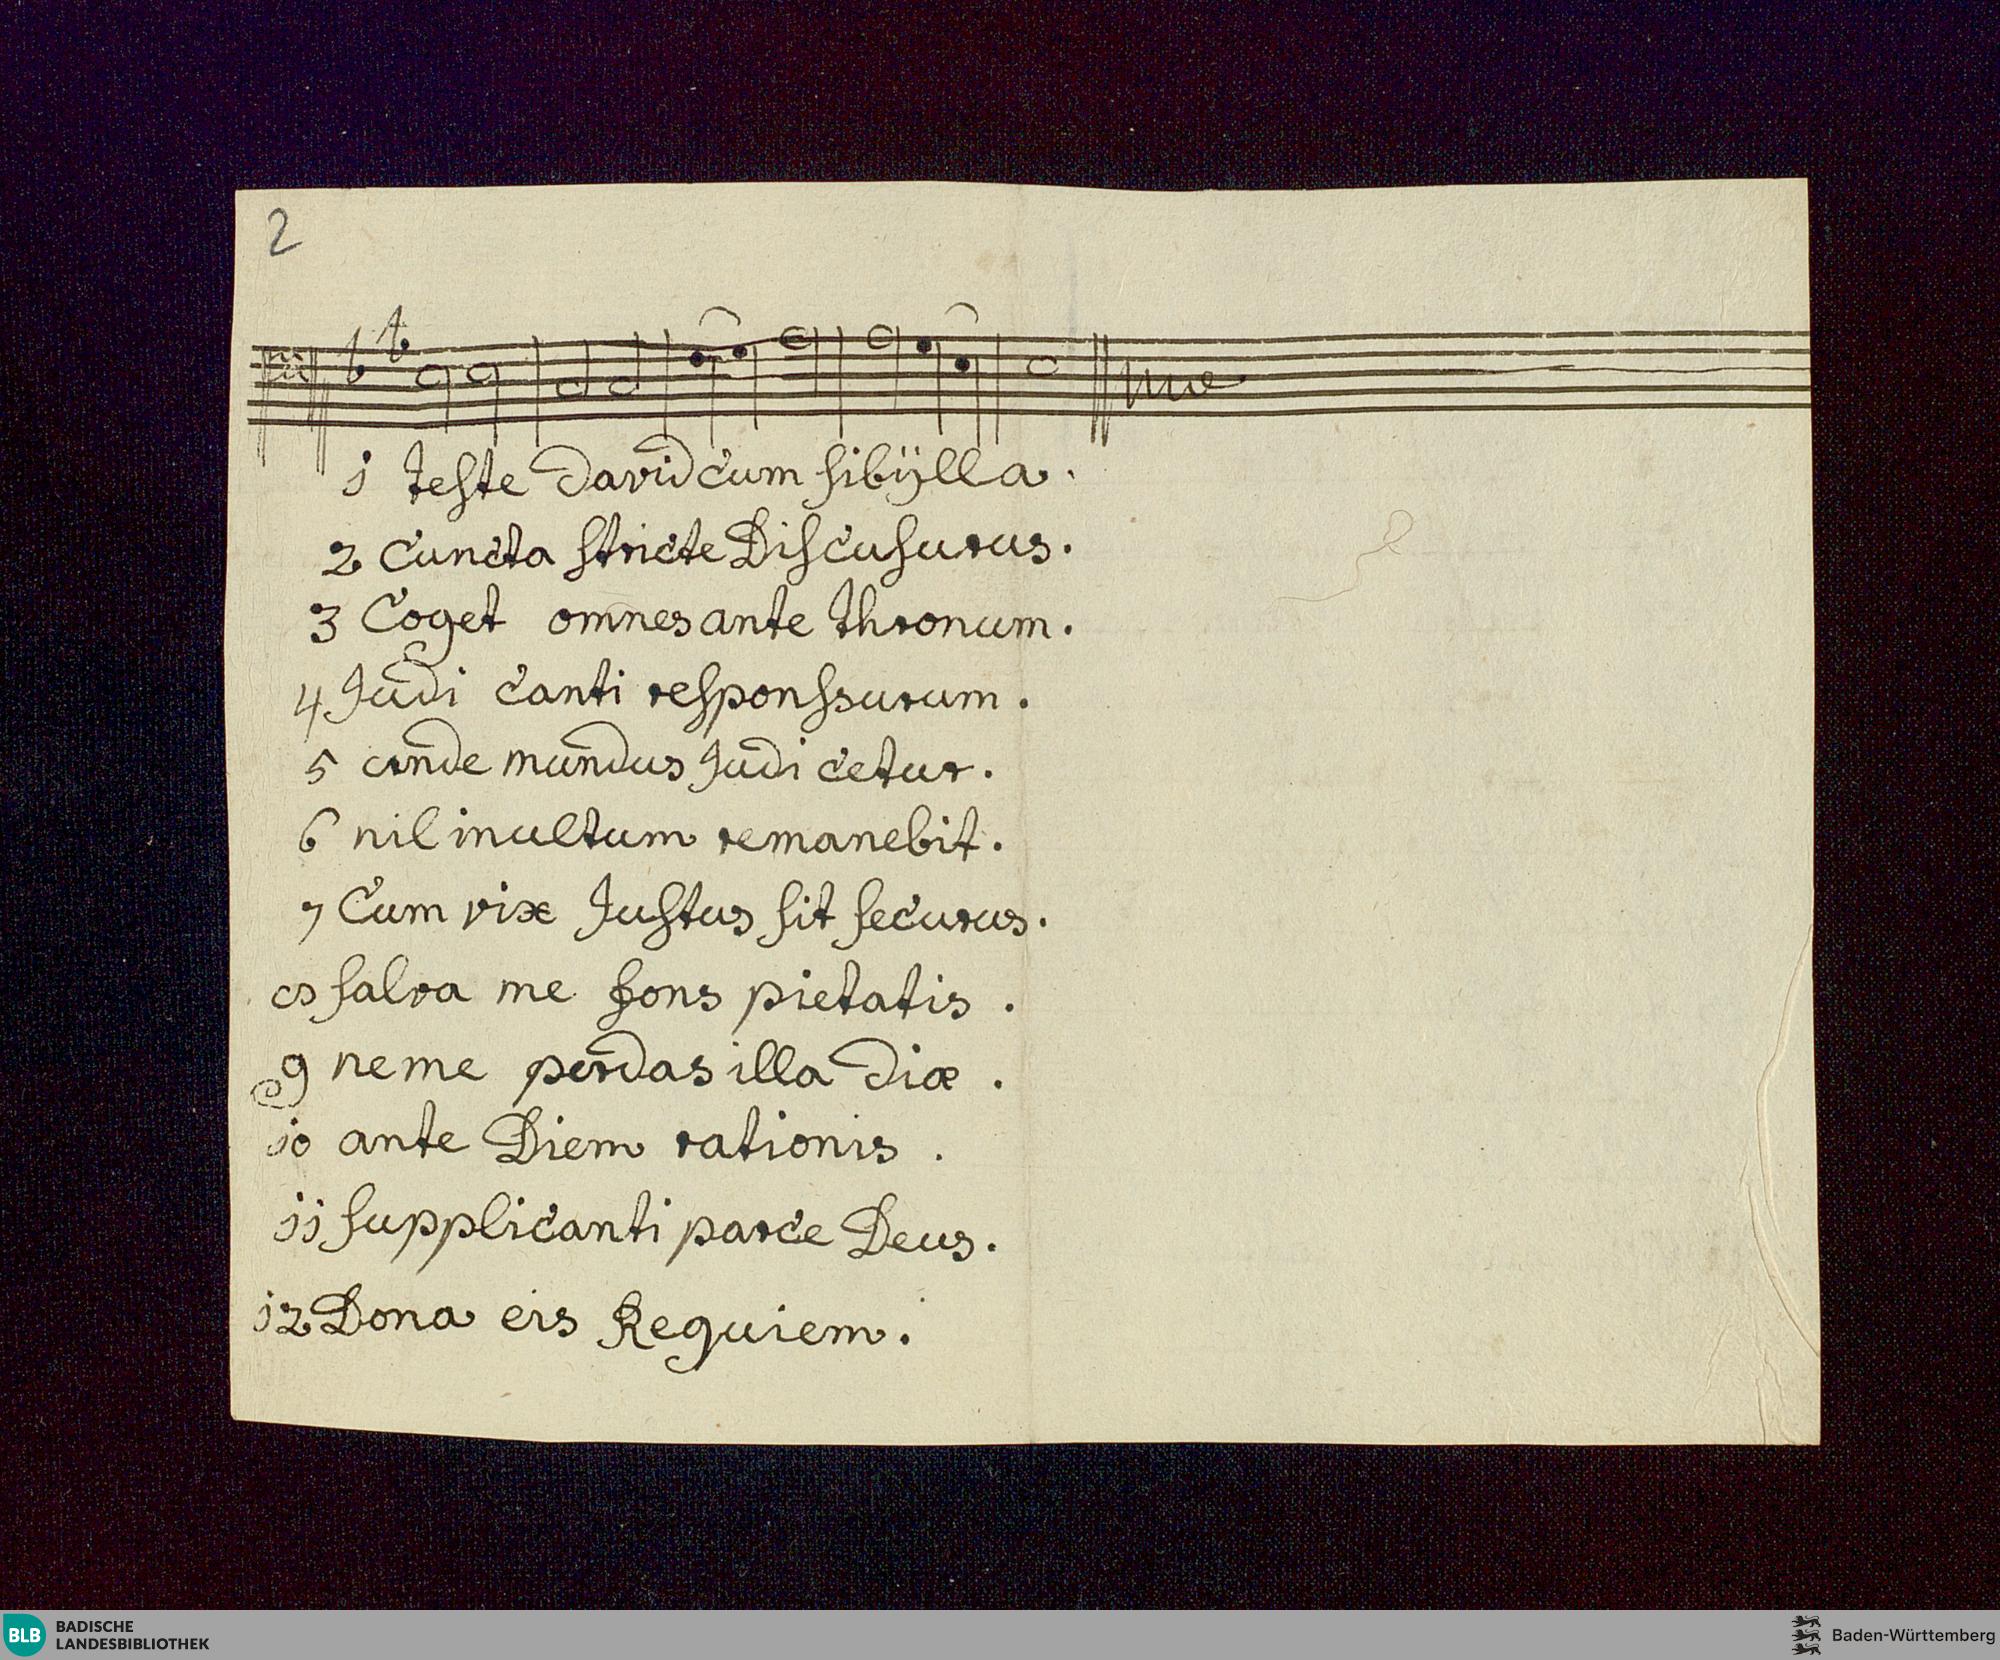 2
1 teste david cum sibÿlla.
2 Cuncta stricte Discusurus.
3 Coget omnes ante thronum.
4 Judi canti responssurum.
5 unde mundus Judi cetur.
6 nil inultum remanebit.
7 Cum vix Justus sit securus.
8 salva me fons pietatis.
9 ne me perdas illa diæ.
10 ante Diem rationis.
11 supplicanti parce Deus.
12 Dona eis Requiem.
BLB BADISCHE
LANDESBIBLIOTHEK
Baden-Württemberg